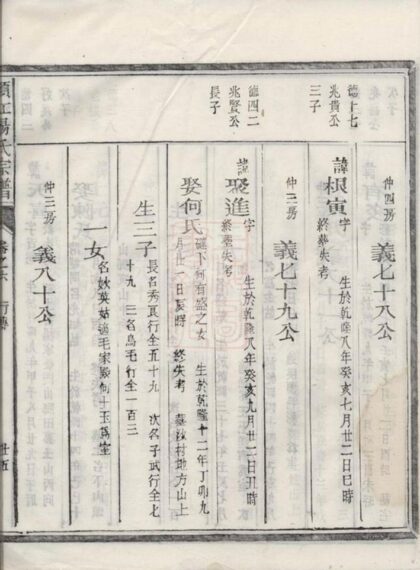 德十七
兆貴公
三子
仲四房
義七十八公
諱根寅字
生於乾隆八年癸亥七月廿二日巳時
終墓失考
仲三房
義七十九公
德四二
兆賢公
長子
諱聚進字
生於乾隆八年癸亥九月廿二日丑時
終墓失考
娶何氏
下何有盛之女 生於乾隆十二年丁卯九
月廿一日 時 終失考 墓 村地方山上
生三子
長名秀 行全五十九 次名子武行全七
十九 三名烏毛行全一百三
一女
名 英姑適毛家 何十玉為室
仲三房
義八十公
氏宗譜
卷之 行傳
廿五